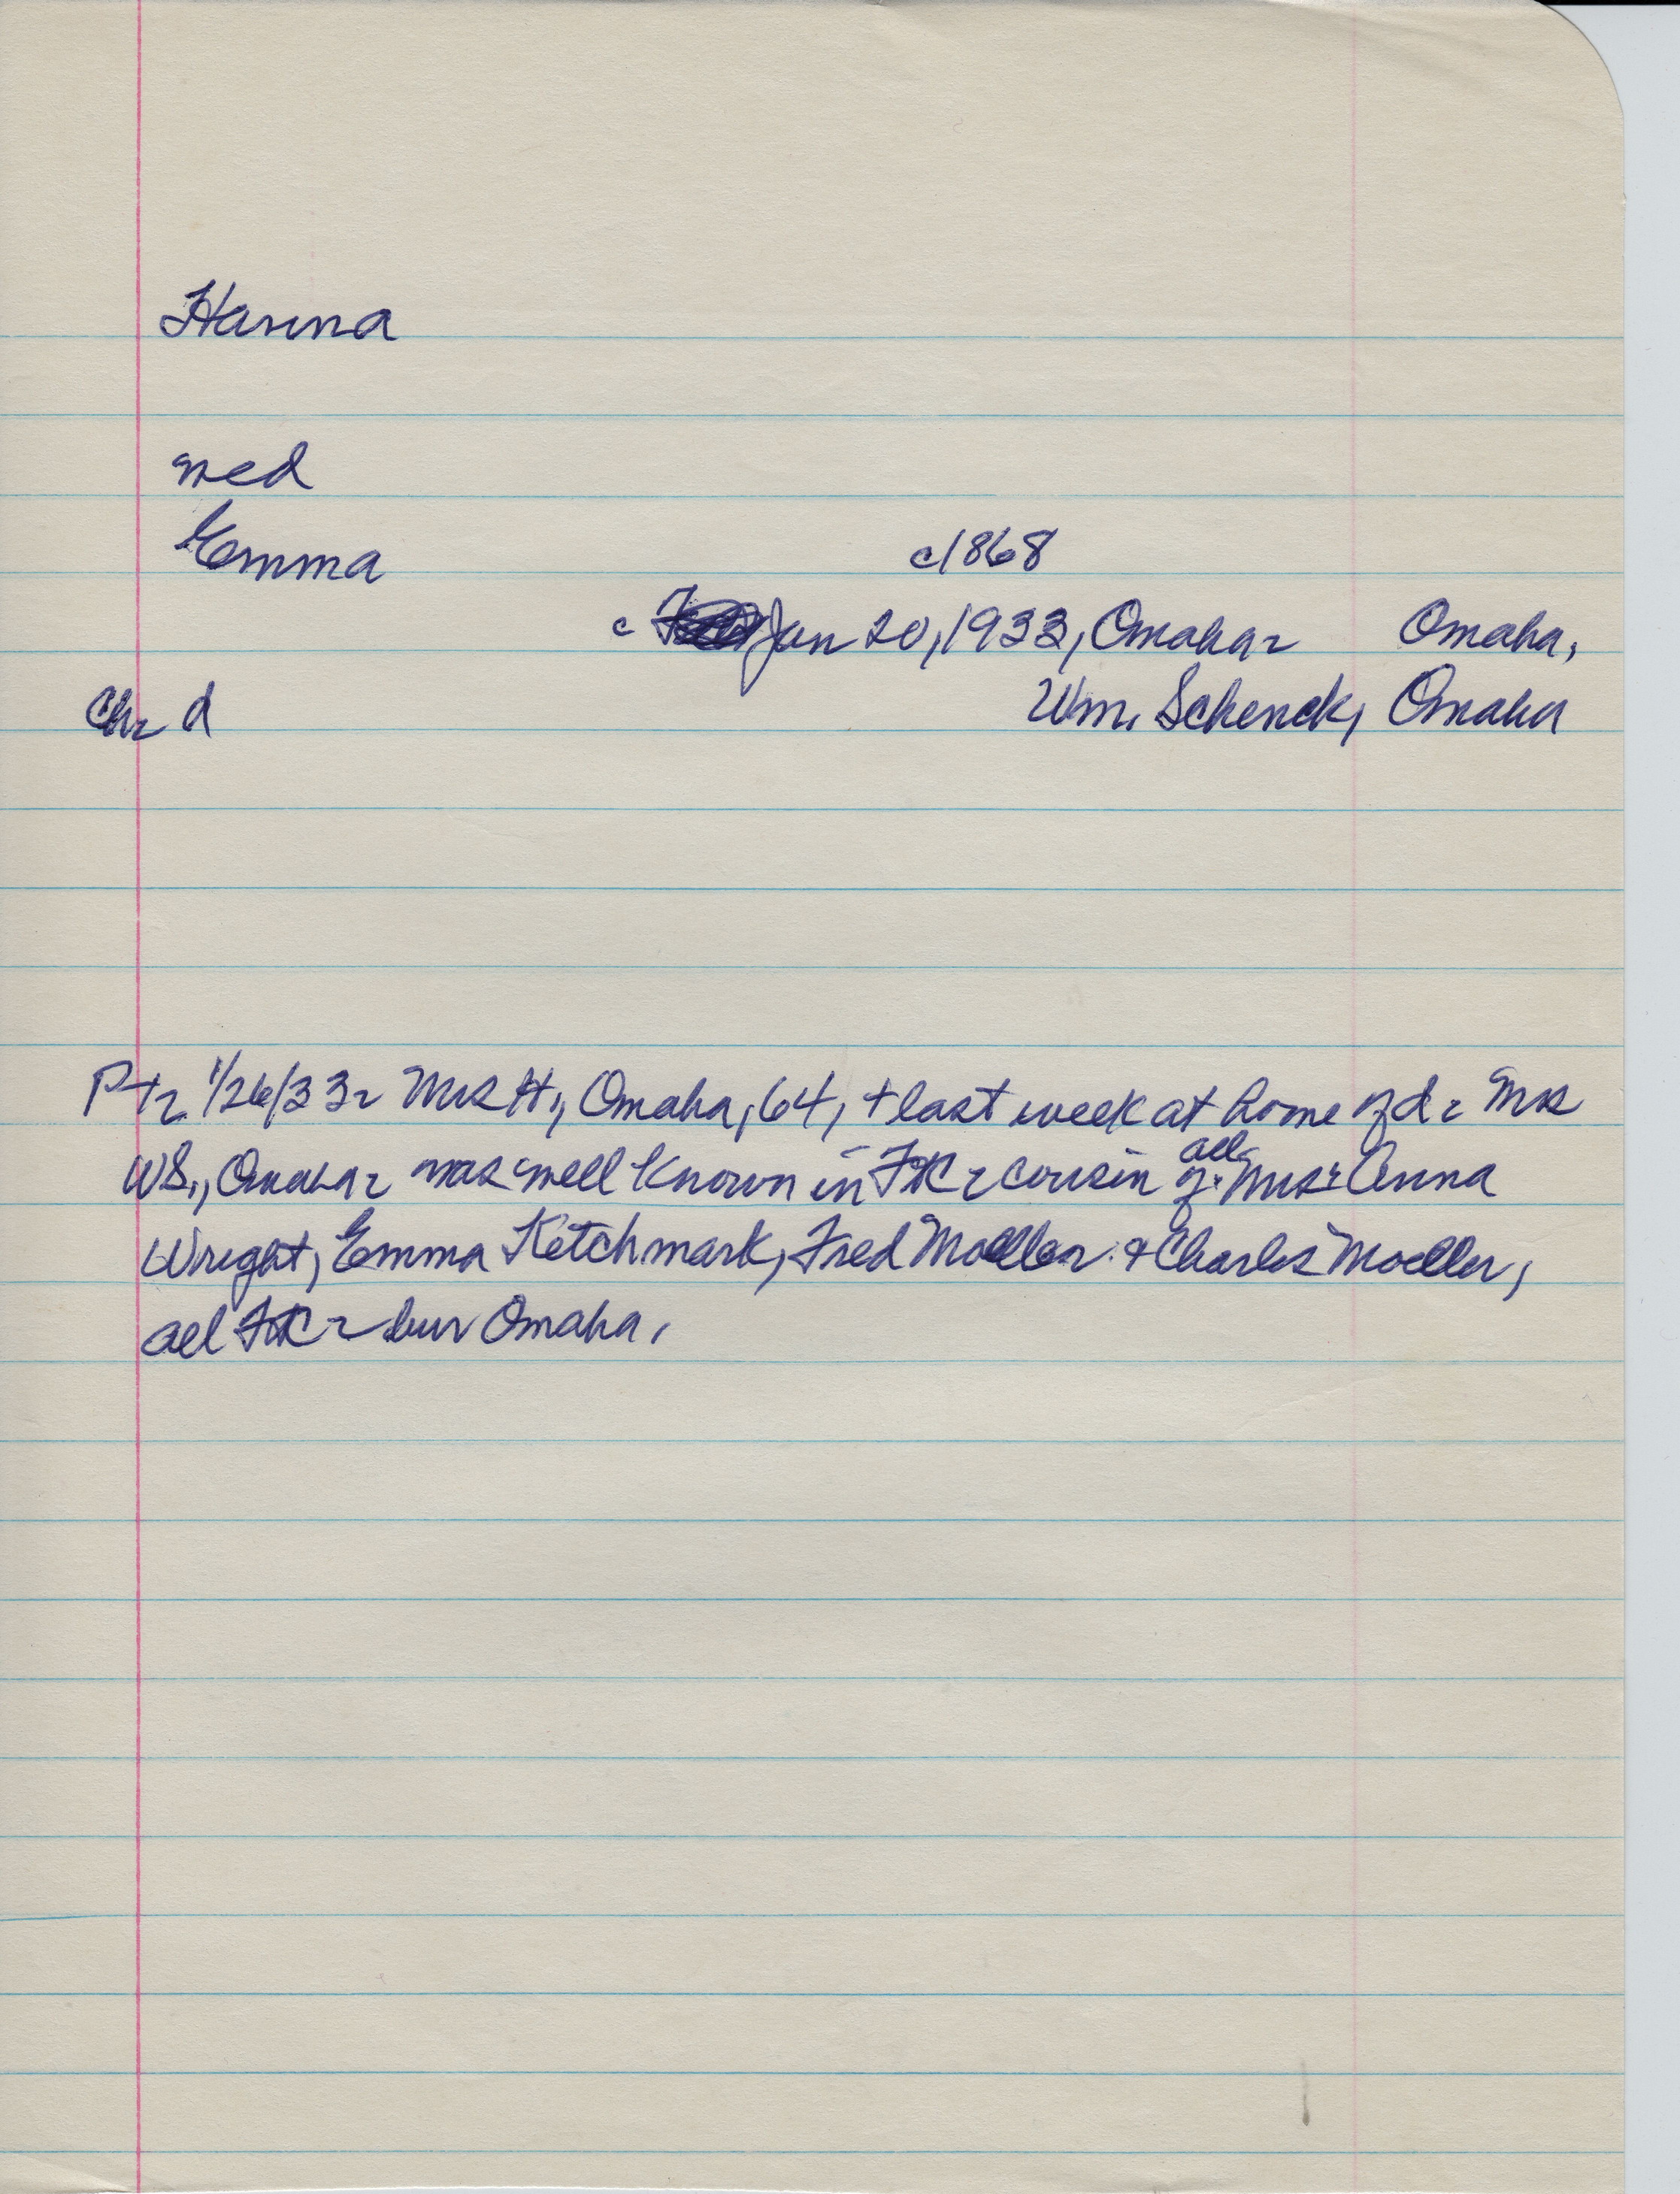 Hanna
wed
Emma
c1868
c Jan 20, 1933, Omaha - Omaha,
Ch - d Wm. Schenck, Omaha
PT - 1/26/33 - Mrs H., Omaha, 64, + last week at home of d - Mrs
WS., Omaha - was well known in FtC - cousin of all Mrs: Anna
Wright, Emma Ketchmark, Fred Moeller & Charles Moeller,
all FtC - bur Omaha.